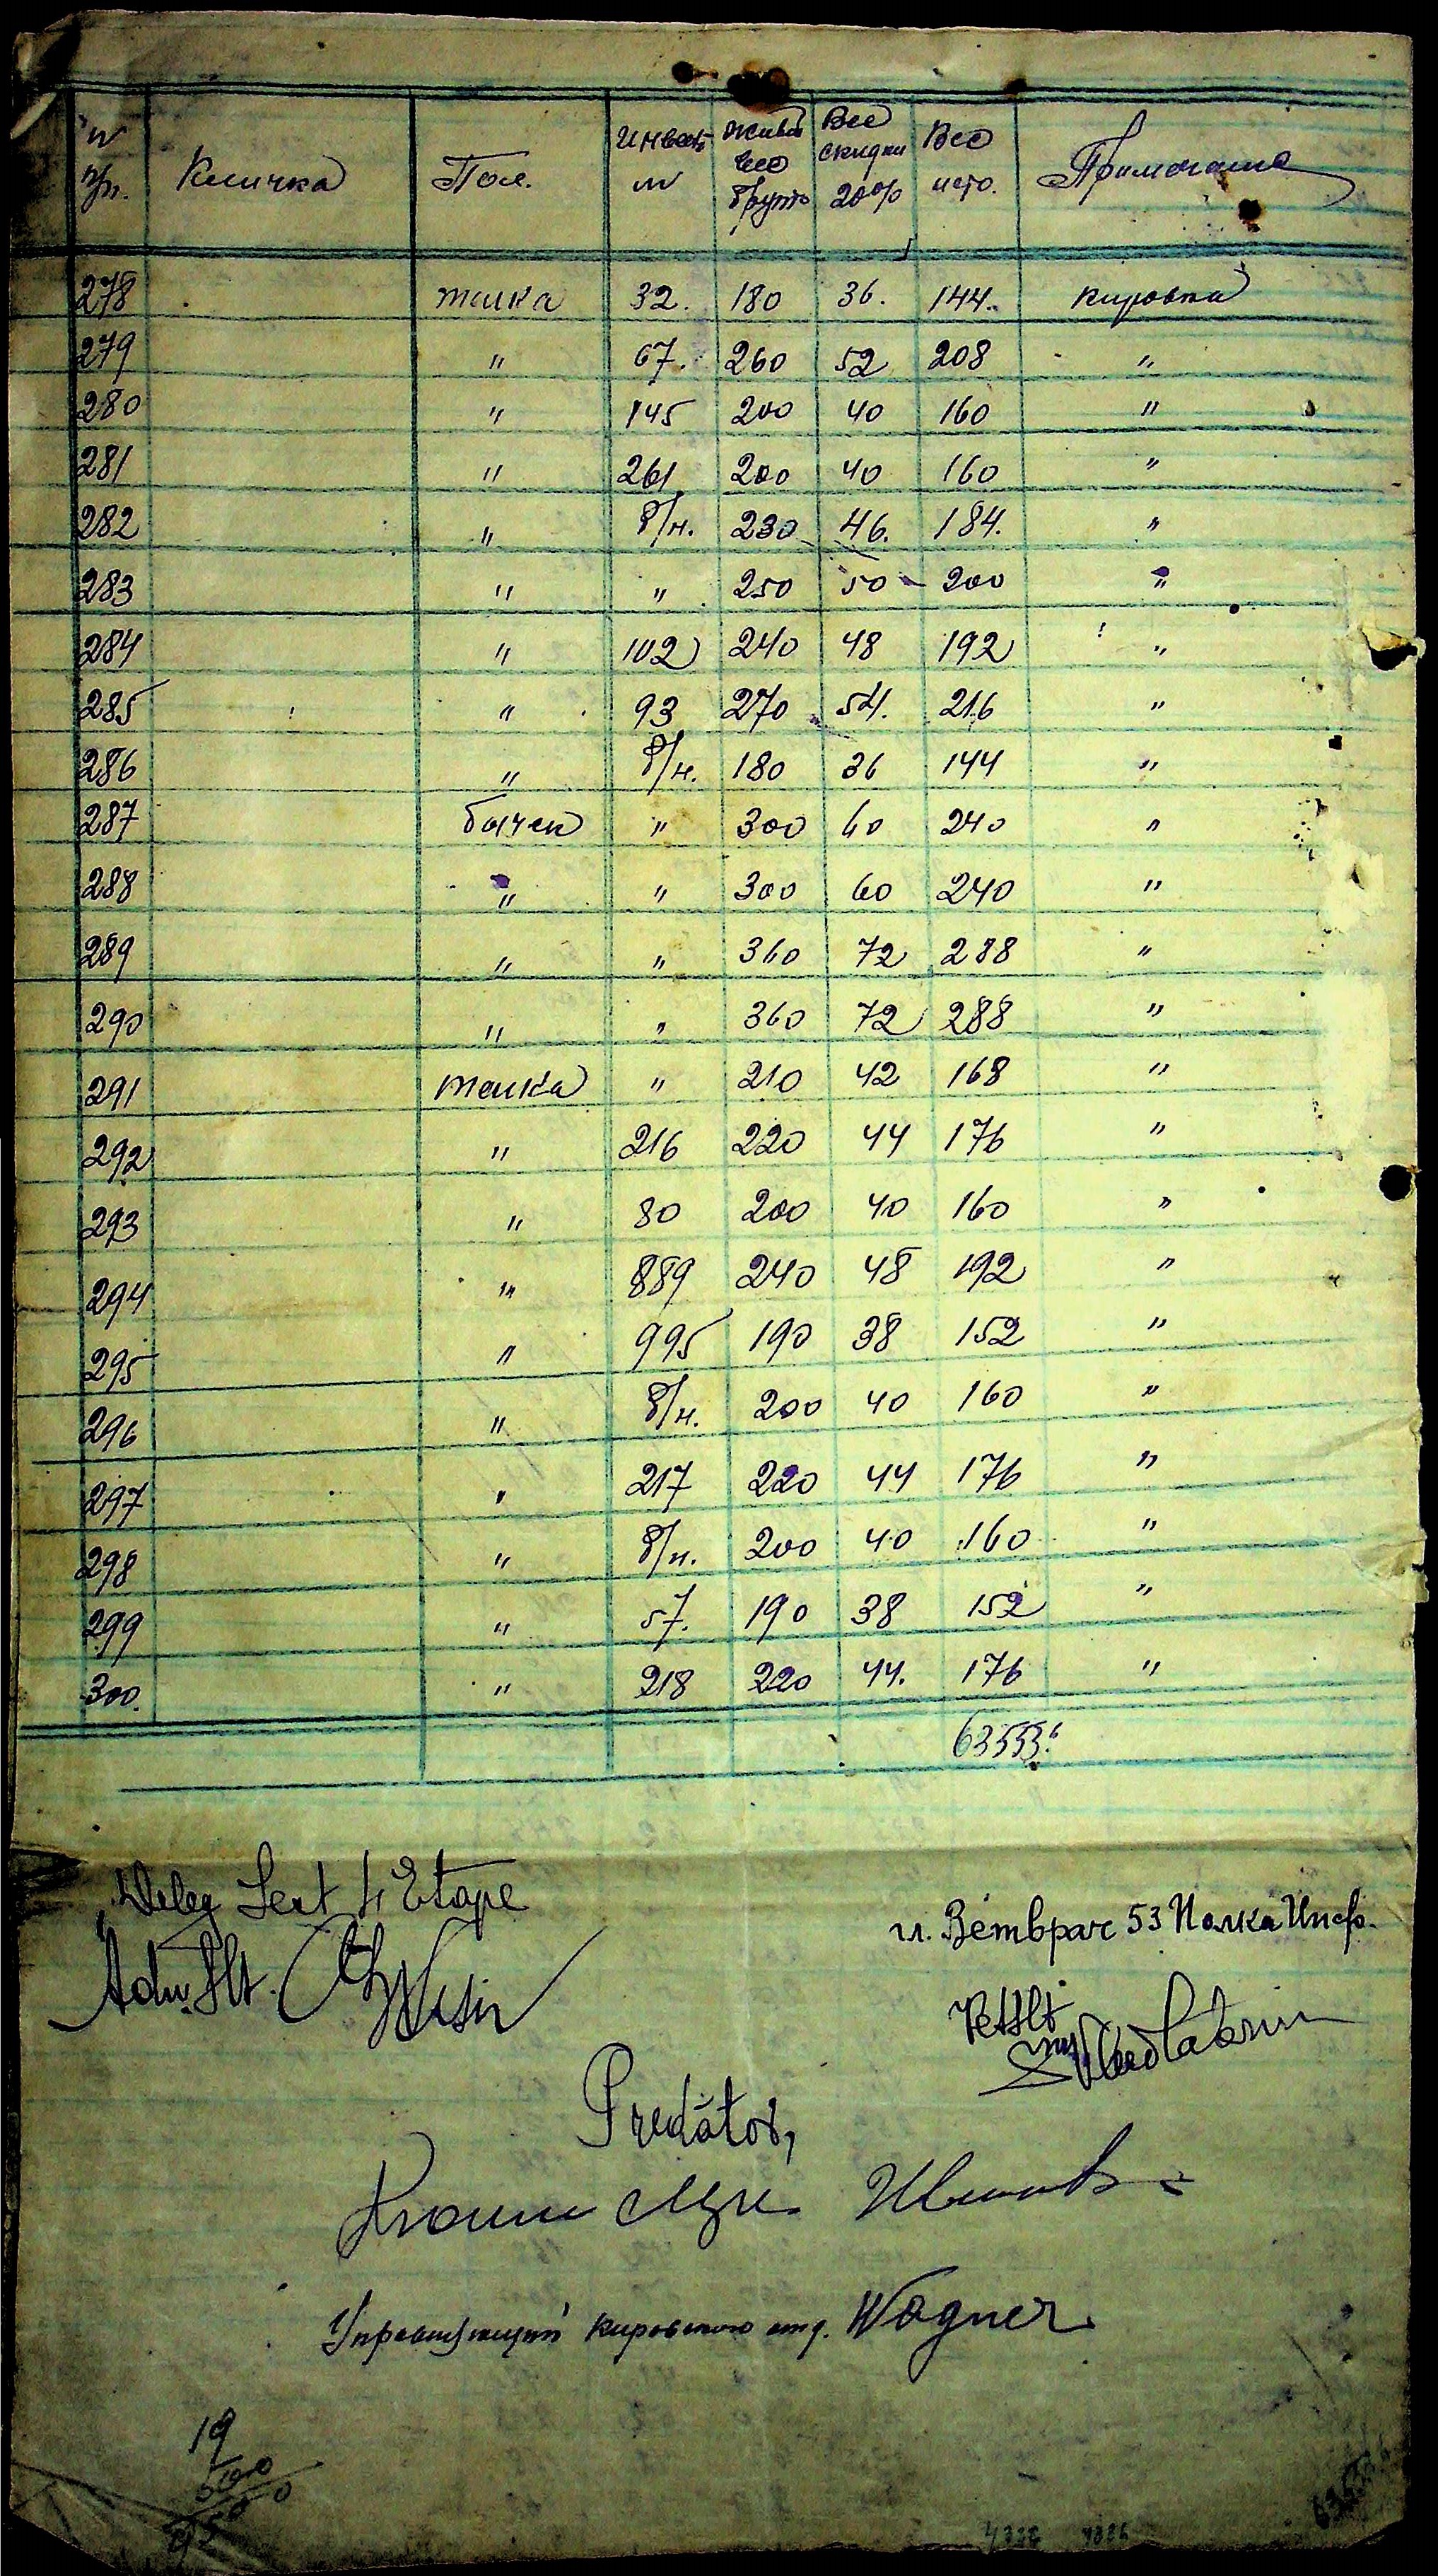 № п/п. Кличка Пол. Инвент. № Живой вес брутто Вес скидки 20% Вес нето. Примечание
278 телка 32. 180 36. 144. кировка
279 " 67. 260 52 208 "
280 " 145 200 40 160 "
281 " 261 200 40 160 "
282 " б/н. 230 46. 184. "
283 " " 250 50 200 "
284 " 102 240 48 192 "
285 " 93 270 54. 216 "
286 " б/н. 180 36 144 "
287 бычек " 300 60 240 "
288 " " 300 60 240 "
289 " " 360 72 288 "
290 " " 360 72 288 "
291 телка " 210 42 168 "
292 " 216 220 44 176 "
293 " 80 200 40 160 "
294 " 889 240 48 192 "
295 " 995 190 38 152 "
296 " б/н. 200 40 160 "
297 " 217 220 44 176 "
298 " б/н. 200 40 160 "
299 " 57. 190 38 152 "
300. " 218 220 44. 176 "
63553.6
Deleg Sert 4 Etape
Adm. Slt.
гл. Ветврач 53 Полка Инф.
Vet Slt
Predător,
Управляющий кировского отд. Wagner
19